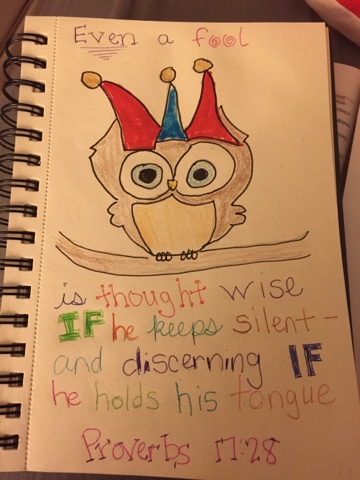 Even a fool
is thought wise
IF he keeps silent-
and discerning IF
he holds his tongue
Proverbs 17:28